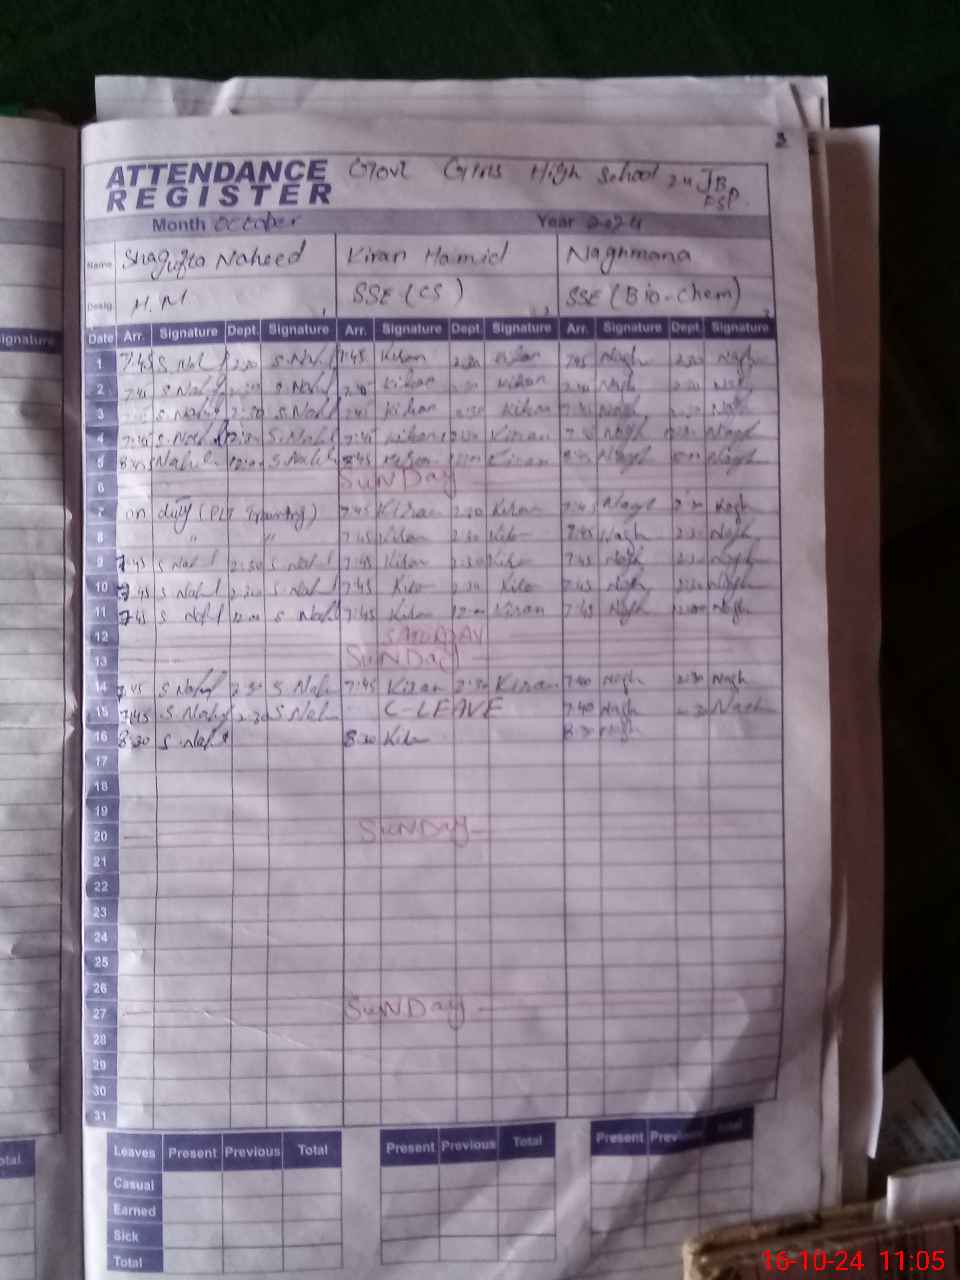 3
ATTENDANCE REGISTER Govt Girls High School JB FSD.
Month October Year 2024
Name Shagufta Naheed Kiran Hamid Naghmana
Desig. H.M 1 SSE (CS) 2 SSE (Bio-Chem) 3
Date Arr. Signature Dept. Signature Arr. Signature Dept. Signature Arr. Signature Dept. Signature
1 7:45 S. Nah 2:30 S. Nah 7:45 Kiran 2:30 Kiran 7:45 Nagh 2:30 Nagh
2 7:45 S Nah S. Nah 7:45 Kiran Kiran Nagh 2:30
3 S Nah 2:30 S. Nah 7:45 Kiran 2:30 Kiran Nagh
4 7:45 S. Nah S. Nah 7:45 Kiran Kiran Nagh Nagh
5 8:45 Nah 12:00 S. Nah 8:45 Kiran 8:45 Nagh Nagh
6 SUNDAY
7 on duty 7:45 Kiran 2:30 Kiran 7:45 Nagh 2:30 Nagh
8 " " 7:45 Kiran 2:30 Kiran 7:45 Nagh 2:30 Nagh
9 7:45 S Nah 2:30 S Nah 7:45 Kiran 2:30 Kiran 7:45 Nagh 2:30 Nagh
10 7:45 S Nah 2:30 S Nah 7:45 Kiran 2:30 Kiran 7:45 Nagh 2:30 Nagh
11 7:45 S Nah 12:00 S Nah 7:45 Kiran 12:00 Kiran 7:45 Nagh 12:00 Nagh
12 SATURDAY
13 SUNDAY
14 7:45 S Nah 2:30 S Nah 7:45 Kiran 2:30 Kiran 7:40 Nagh 2:30 Nagh
15 7:45 S. Nah 2:30 S Nah C-LEAVE 7:40 Nagh Nagh
16 8:30 S. Nah 8:30 Kiran 8:30 Nagh
17
18
19
20 SUNDAY
21
22
23
24
25
26
27 SUNDAY
28
29
30
31
Leaves Present Previous Total Present Previous Total Present Previous Total
Casual
Earned
Sick
Total
Signature
Total
16-10-24 11:05